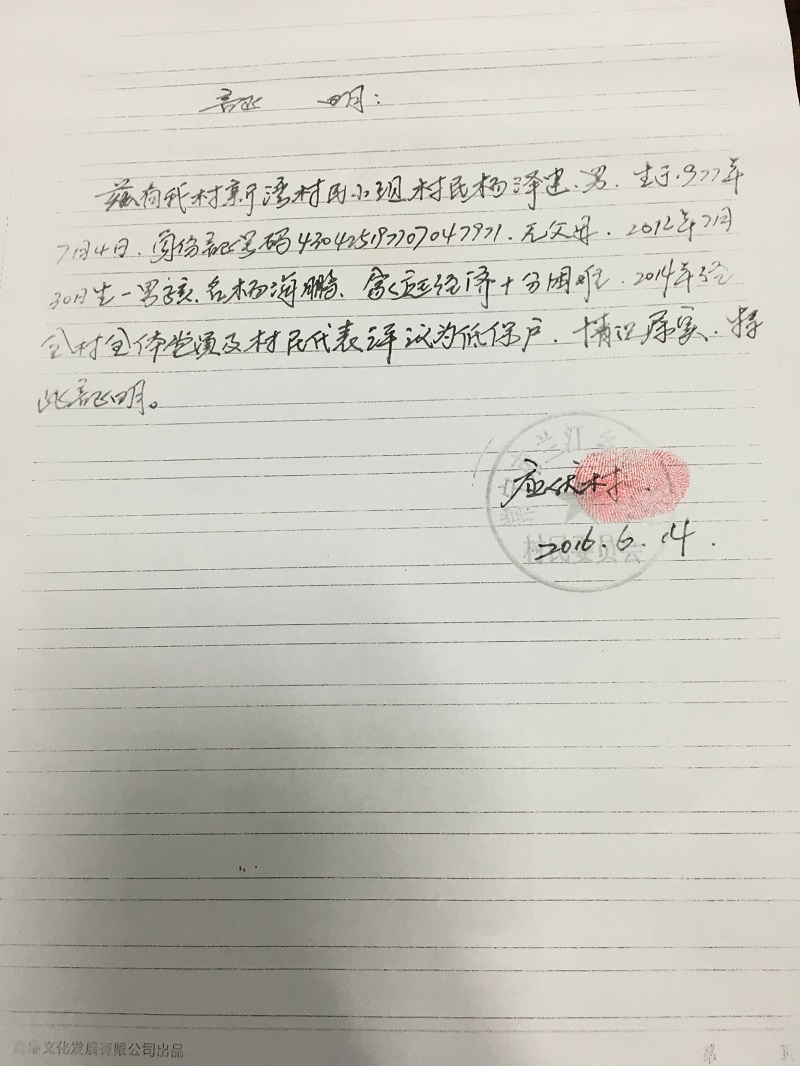 证 明:
兹有我村新湾村民小组村民杨泽建、男、生于1977年
7月4日、身份证号码430425197707047971.无父母.2012年7月
30日生一男孩、名杨海鹏、家庭经济十分困难.2014年经
全村全体党员及村民代表评议为低保户.情况属实.特
此证明。
兰江
村.
2016.6.14.
村民委员会
文化发展有限公司出品
第 页